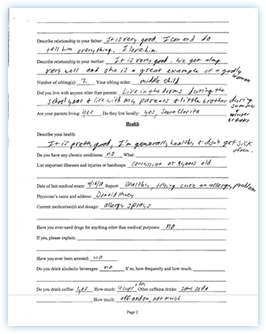 Describe relationship to your father: It is very good. I can and do
tell him everything. I love him.
Describe relationship to your mother: It is very good. We get along
very well and she is a great example of a godly woman
Number of sibling(s) 2 Your sibling order: middle child
Did you live with anyone other than parents: Live in the dorms during the
school year + live with my parents + little brother during summer winter breaks
Are your parents living: yes Do they live locally: yes, Santa Clarita
Health
Describe your health:
It is pretty good, I'm generally healthy + don't get sick often.
Do you have any chronic conditions: no What:
List important illnesses and injuries or handicaps: concussion at 9 years old
Date of last medical exam: Report: Healthy, allergy problem
Physician's name and address: Donald
Current medication(s) and dosage: Allergy sprays
Have you ever used drugs for anything other than medical purposes: no
If yes, please explain:
Have you ever been arrested: no
Do you drink alcoholic beverages: no If so, how frequently and how much:
Do you drink coffee: yes How much: Other caffeine drinks: some soda
How much: off and on, not much
Page 2